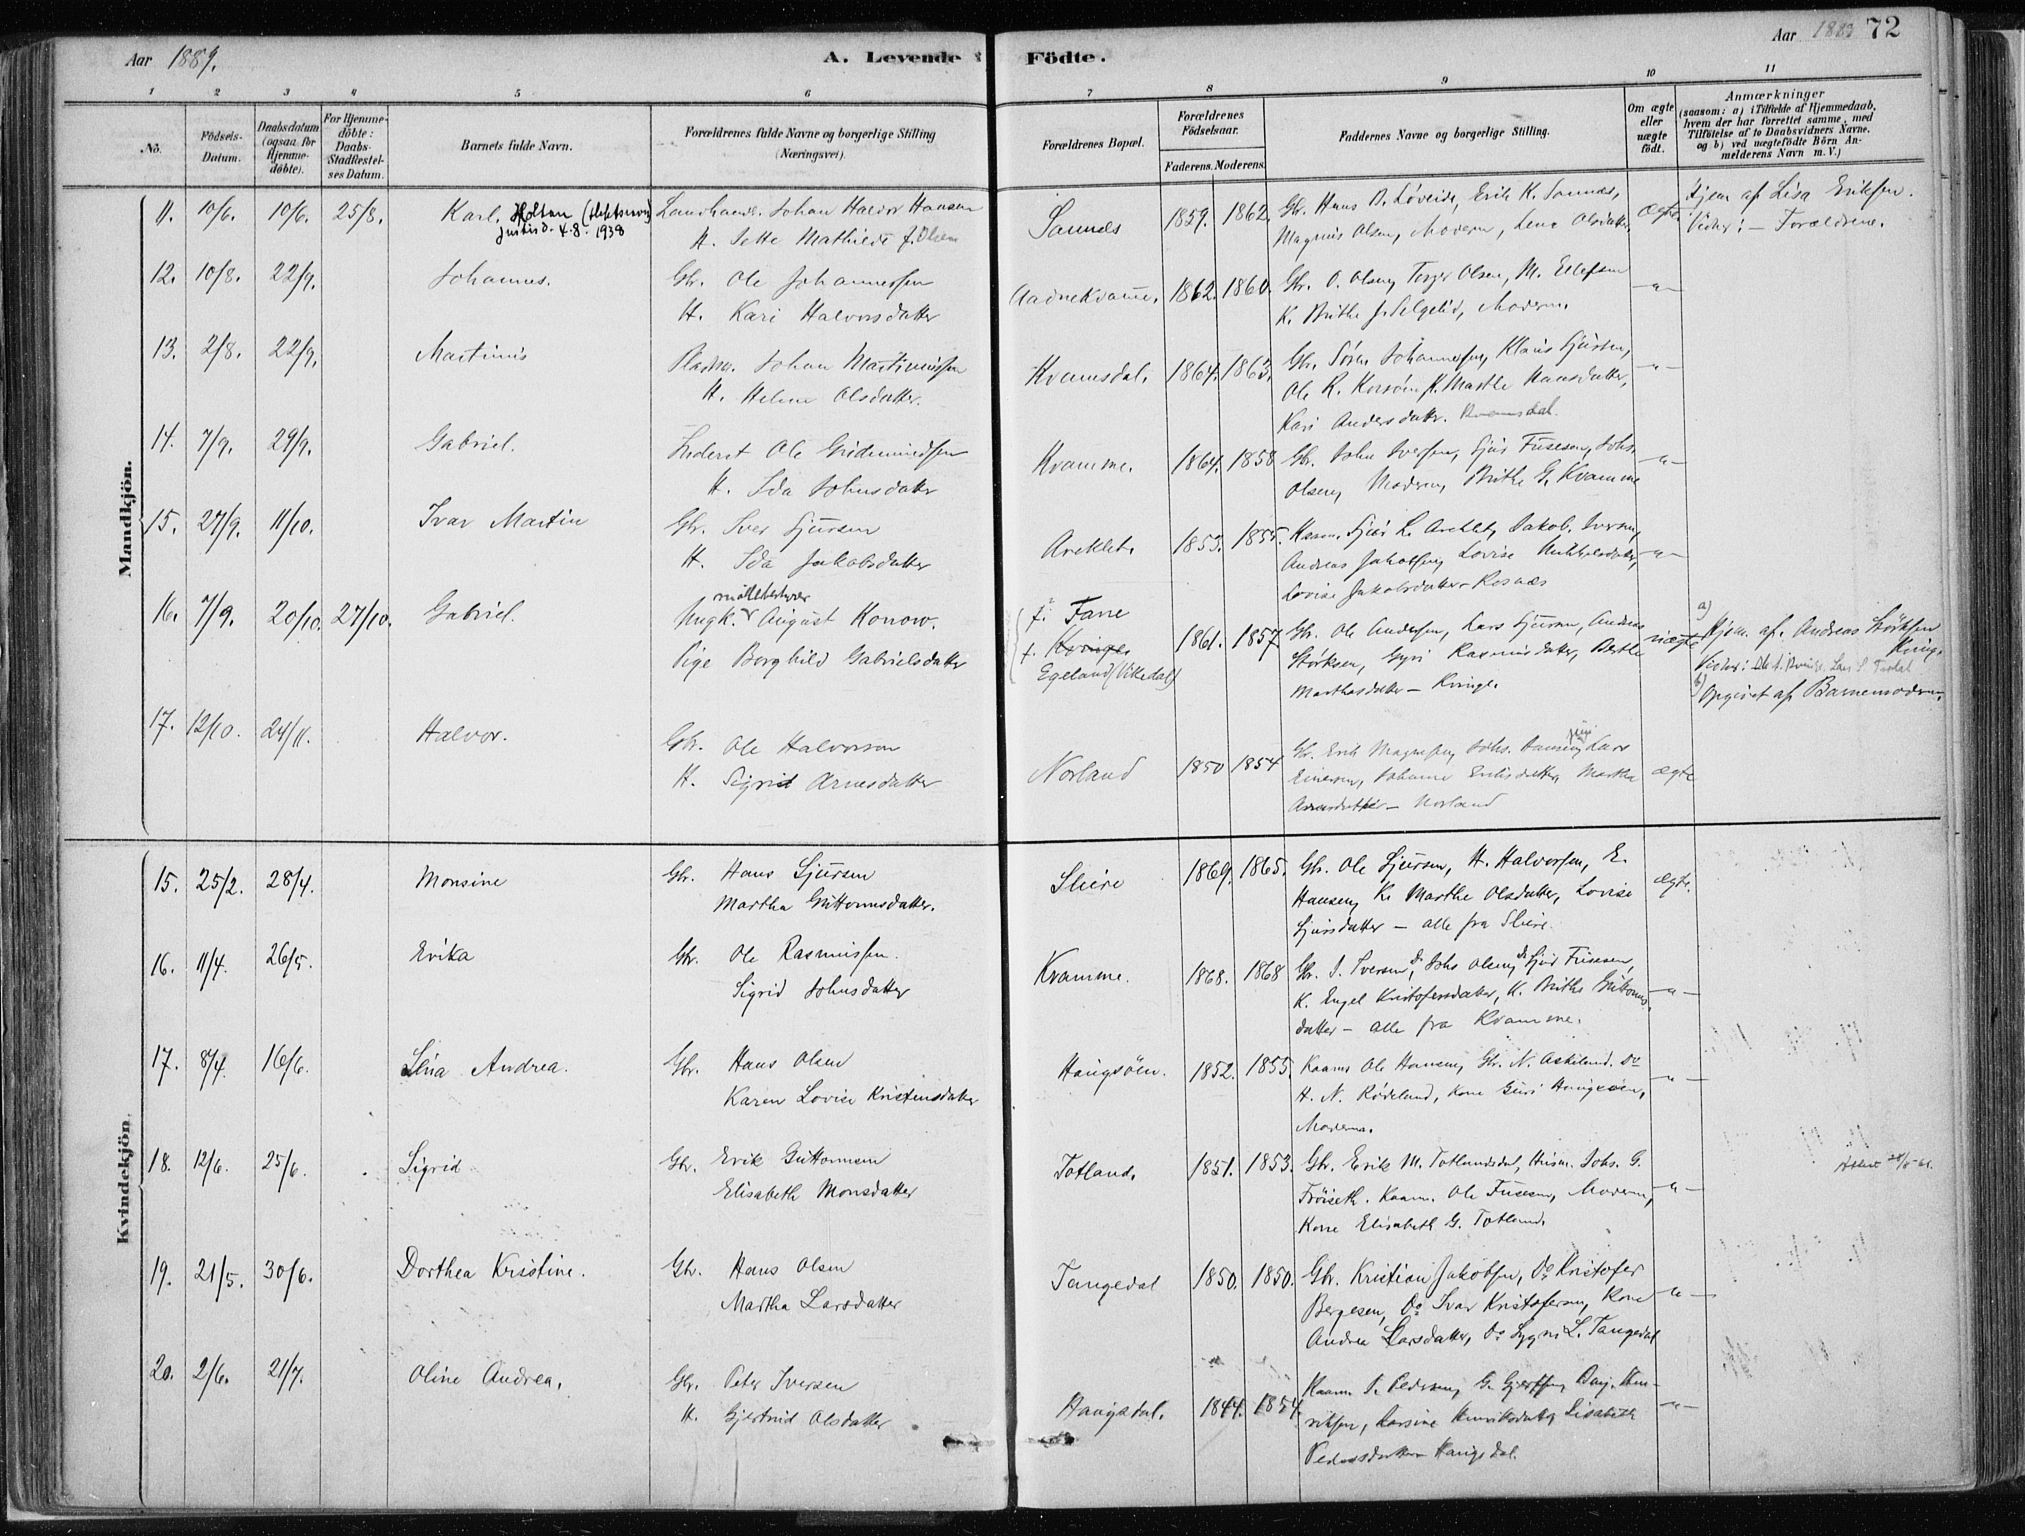 Aar 1889.
A. Levende
Födte.
Aar 1889
72
1 2 3 4 5 6 7 8 9 10 11
No.
Födsels-Datum.
Daabsdatum (ogsaa for Hjemme-döbte).
For Hjemme-döbte: Daabs-Stadfæstel-ses Datum.
Barnets fulde Navn.
Forældrenes fulde Navne og borgerlige Stilling (Næringsvei).
Forældrenes Bopæl.
Forældrenes Födselsaar.
Faderens. Moderens.
Faddernes Navne og borgerlige Stilling.
Om ægte eller uægte födt.
Anmærkninger
(saasom: a) i Tilfælde af Hjemmedaab, hvem der har forrettet samme, med Tilföielse af to Daabsvidners Navne. og b) ved uægtefödte Börn An-melderens Navn m. V.)
Mandkjön.
11. 10/6. 10/6. 25/8. Karl. Holtan
Justisd. 4.8.1938
Landhandl. Johan Haldor Hansen
H. Jette Mathilde f. Olsen
Somnes 1859. 1862.
Gbr. Hans B. Løveide, Erik K. Somnes,
Magnus Olsen, Moderen, Lena Olsdatter
Ægte
Hjem. af Lisa Eriksen.
Vidner: – Forældrene.
12. 10/8. 22/9. Johannes.
Gbr. Ole Johannessen
H. Kari Halvorsdatter
Aadnekvame. 1862. 1860.
Gbr. O. Olsen, Torger Olsen, M. Ellefsen
K. Brithe J. Selgelid, Moderen.
-"-
13. 2/8. 22/9. Martinus
Pladsm. Johan Martinussen
H. Helene Olsdatter.
Kvamsdal. 1864. 1863.
Gbr. Søren Johannessen, Klaus Sjursen,
Ole R. K. Marthe Hansdatter,
Kari Andersdatter. Kvamsdal.
-"-
14. 7/9. 29/9. Gabriel.
Inderst Ole Gudmundsen
H. Ida Johnsdatter
Kvamme. 1864. 1858
Gbr. John Iversen, Sjur Fusesen, Johs.
Olsen, Moderen, Brithe G. Kvamme
-"-
15. 27/9. 11/10. Ivar Martin
Gbr. Iver Sjursen
H. Ida Jakobsdatter
Areklet. 1853. 1855.
Sjur L. Areklet, Jakob Iversen,
Andreas Jakobsen, Lovise
Lovise Jakobsdatter – Rosnæs
-"-
16. 7/9. 20/10. 27/10. Gabriel.
Ungk. August Konow.
Pige Borghild Gabrielsdatter
f: Fane
t. Kvinge
Egeland (Vikedal)
1861. 1857
Gbr. Ole Andersen, Lars Sjursen, Andreas
Størksen, Gyri Rasmusdatter, Berthe
Marthasdatter – Kvinge.
uægte
a) Hjem. af. Andreas Størksen
Kvinge
Vidner: Ole A. Kvinge, Lars S.
b) Opgivet af Barnemoderen.
17. 12/10. 24/11. Halvor.
Gbr. Ole Halvorsen
H. Sigrid Arnesdatter
Norland 1850 1854
Gbr. Erik Magnesen, Johs. Lars
Einersen, Johanne Eriksdatter, Martha
Arnesdatter – Norland
ægte
Kvindekjön.
15. 25/2. 28/4. Monsine
Gbr. Hans Sjursen
Martha Guttormsdatter.
Sleire 1869. 1865.
Gbr. Ole Sjursen, H. Halvorsen, E.
Hansen, K. Marthe Olsdatter, Lovise
Sjursdatter – alle fra Sleire
ægte.
16. 11/4. 26/5. Erika
Gbr. Ole Rasmussen.
Sigrid Johnsdatter
Kvamme. 1868. 1868
Gbr. J. Iversen, Do Johs Olsen, Do Sjur Fusesen,
K. Engel Kristofersdatter, K. Brithe Guttorms-
datter – alle fra Kvamme.
-"-
17. 8/4. 16/6. Lina Andrea.
Gbr. Hans Olsen
Karen Lovise Kristensdatter
Haugsöen. 1852. 1855.
Kaarm. Ole Hansen, Gbr. N. Askeland. Do
H. N. Rödeland, Kone Guri Haugsöen,
Moderen.
-"-
18. 12/6. 25/6. Sigrid
Gbr. Erik Guttormsen
Elisabeth Monsdatter
Totland. 1851. 1853.
Gbr. Erik M. Totlandsdal, Husm. Johs. G.
Fröiseth. Kaarm. Ole Fusesen, Moderen,
Kone Elisabeth G. Totland.
-"-
19. 21/5. 30/6. Dorthea Kristine.
Gbr. Hans Olsen
Martha Larsdatter
Tangedal 1850. 1850.
Gbr. Kristian Jakobsen, Do Kristofer
Bergesen, Do Ivar Kristofersen, Kone
Andrea Larsdatter, Do Sygni L. Tangedal
-"-
20. 2/6. 21/7. Oline Andrea.
Gbr. Peter Iversen
H. Gjertrud Olsdatter
Haugsdal. 1844. 1854.
Kaarm. P. Pedersen, G. Gjertsen, Benj. Hen-
riksen, Karsine Henriksdatter, Lisabeth
Pedersdatter Haugsdal.
-"-